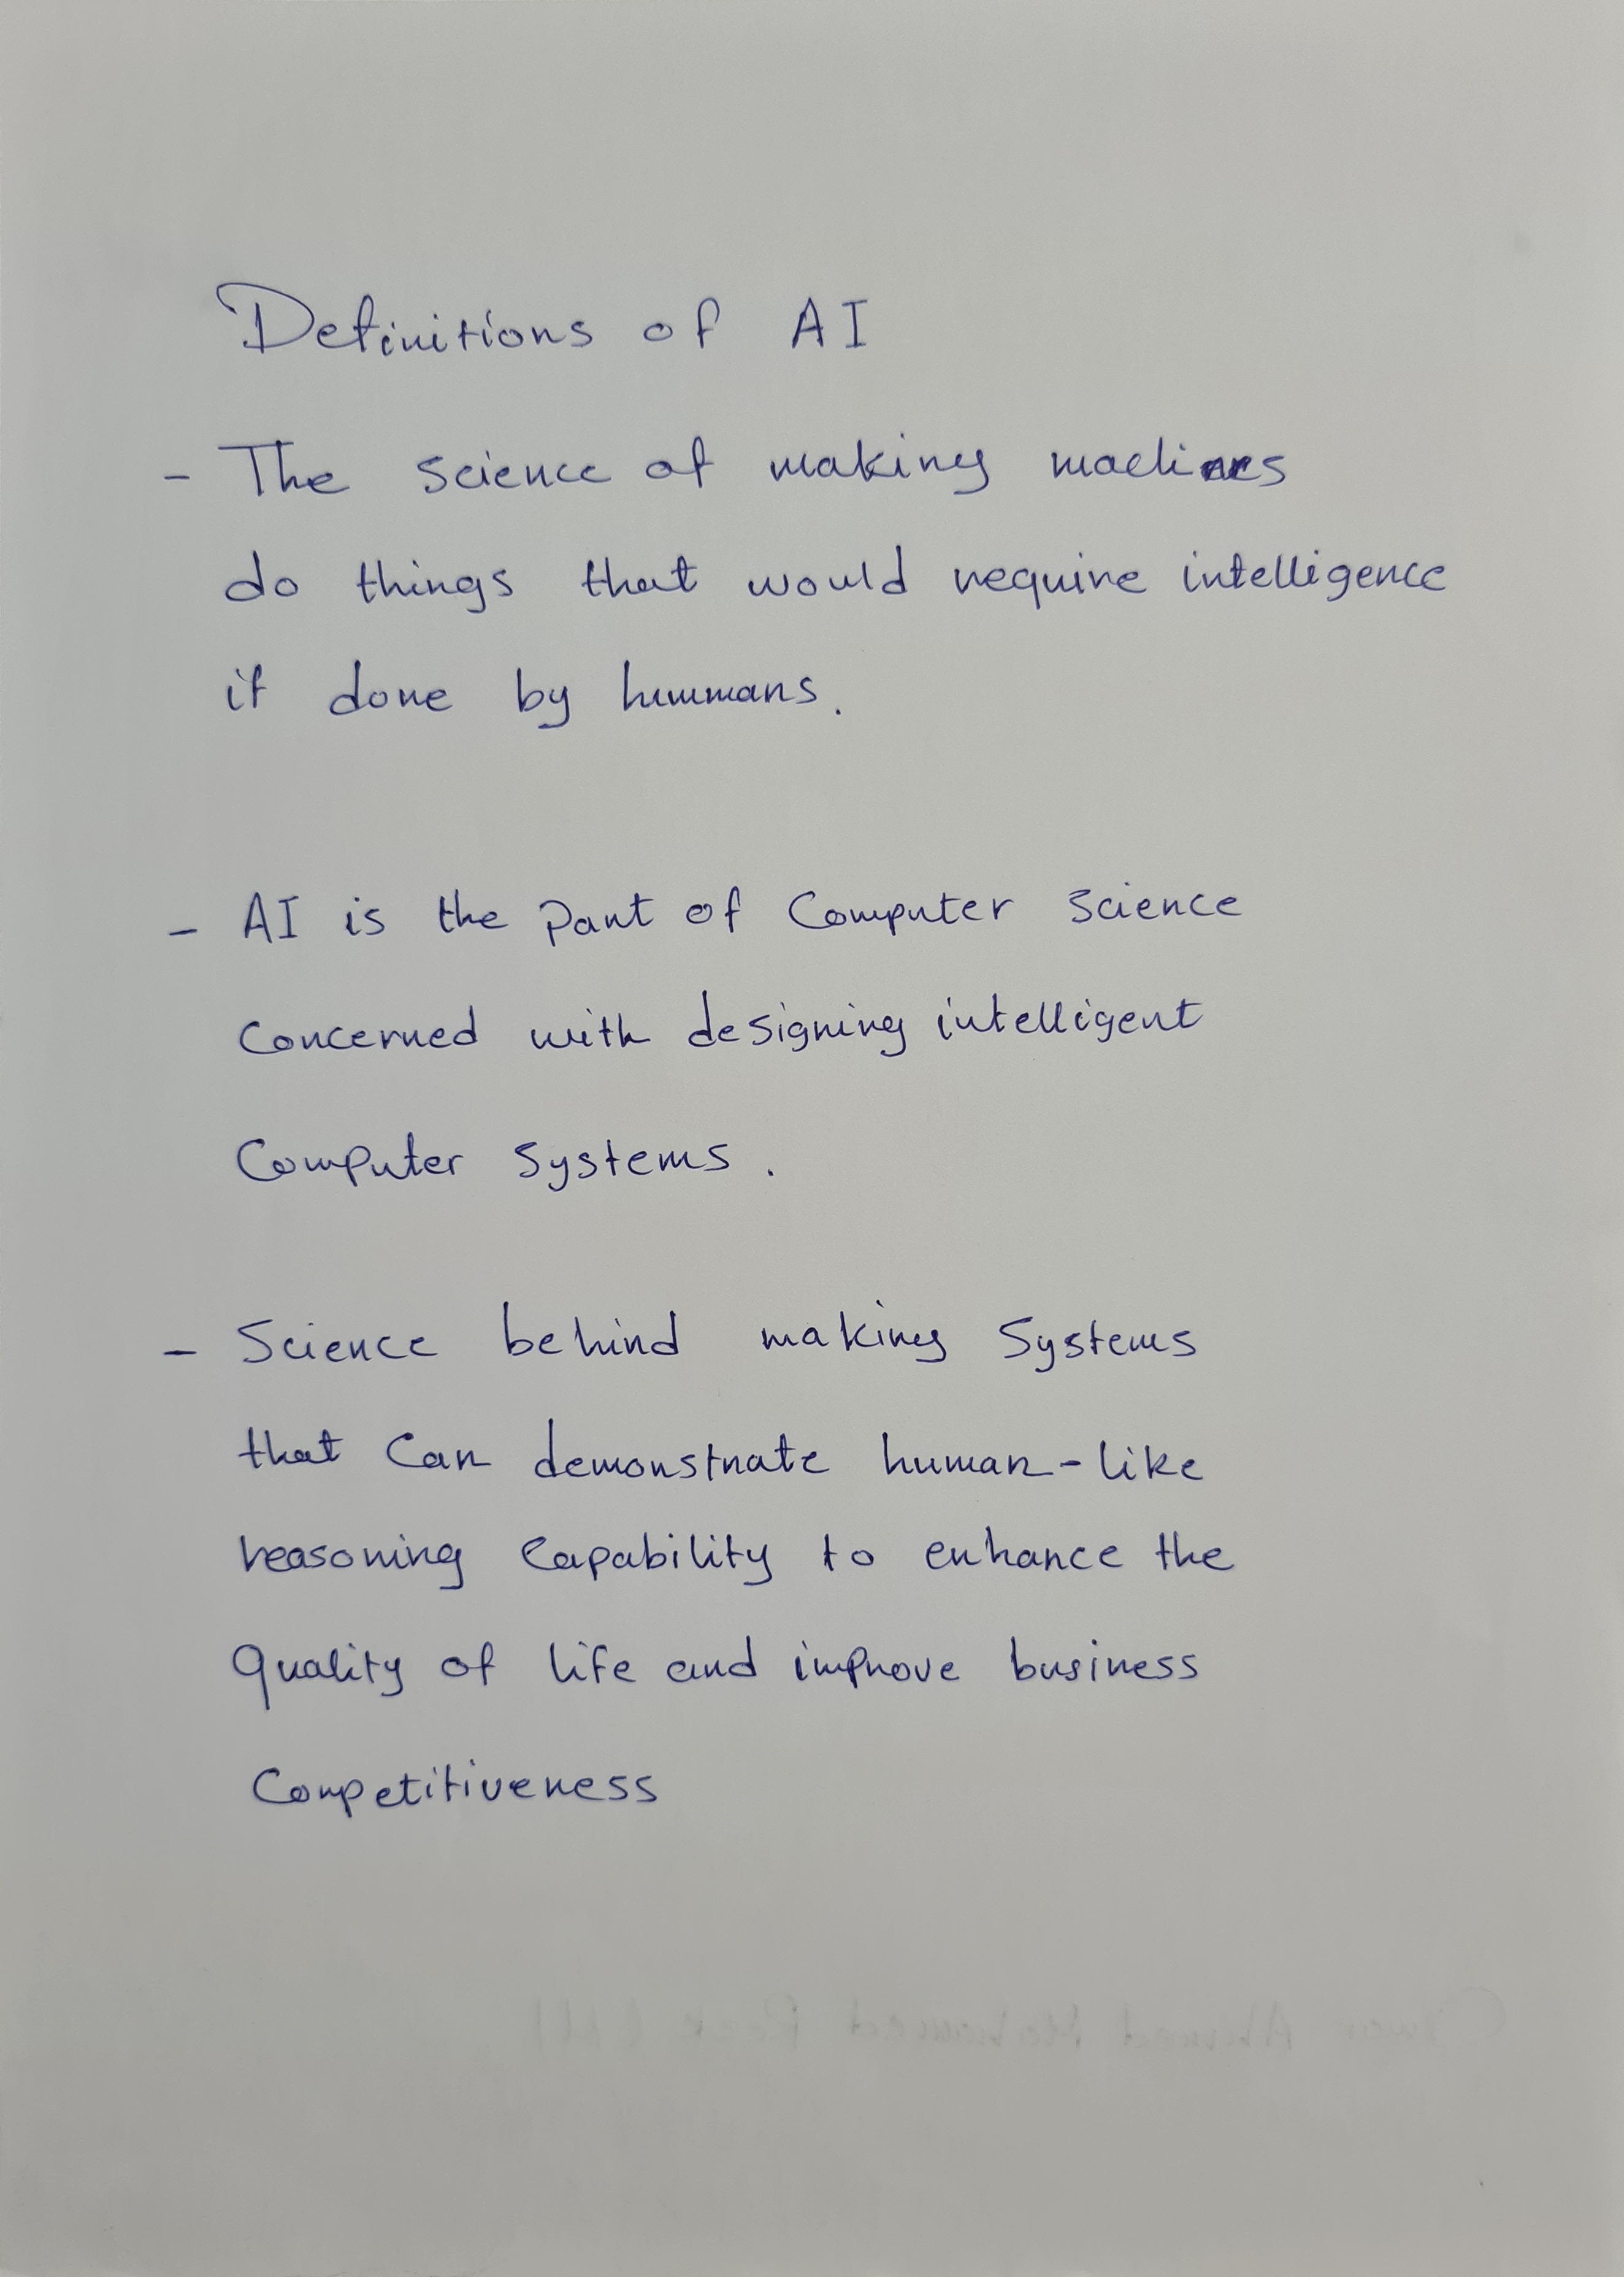 Definitions of AI
- The science of making machines
do things that would require intelligence
if done by hummans.
- AI is the part of Computer science
concerned with designing intelligent
Computer systems.
- Science behind making Systems
that Can demonstrate human-like
reasoning Capability to enhance the
Quality of life and improve business
Competitiveness